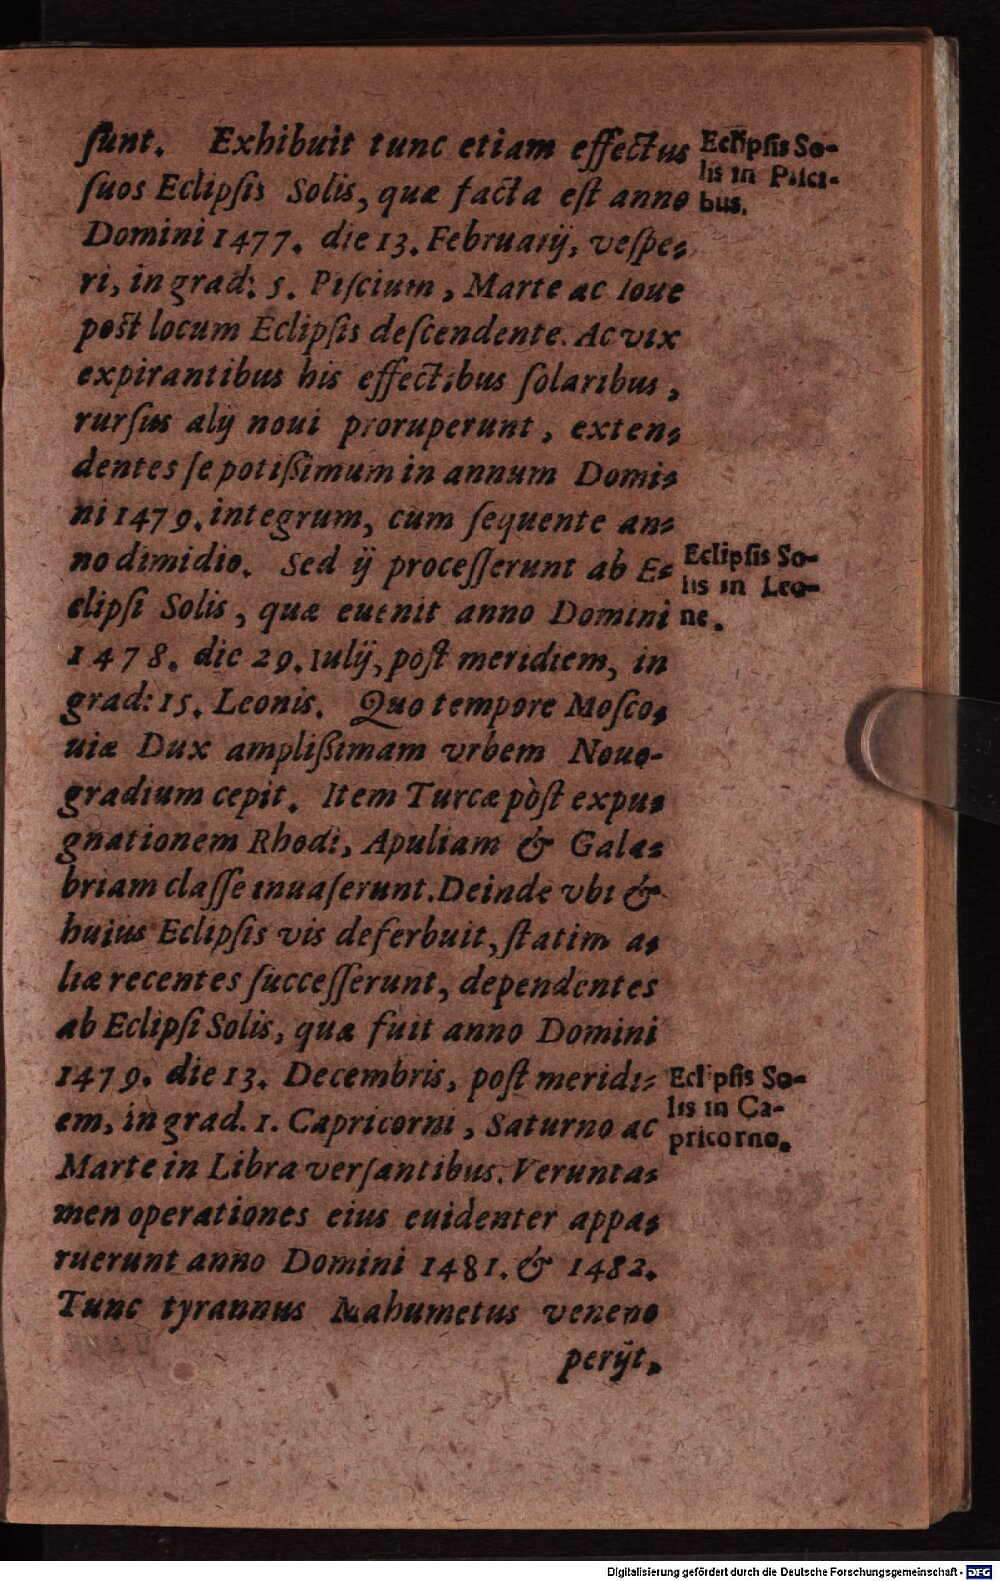 ſunt. Exhibuit tunc etiam effectus
ſuos Eclipſis Solis, quæ facta eſt anno
Domini 1477. die 13. Februarij, veſpe⸗
ri, in grad: 5. Piſcium, Marte ac Ioue
poſt locum Eclipſis deſcendente. Ac vix
expirantibus his effectibus ſolaribus,
rurſus alij noui proruperunt, exten⸗
dentes ſe potißimum in annum Domi⸗
ni 1479. integrum, cum ſequente an⸗
no dimidio. Sed ij proceſſerunt ab E⸗
clipſi Solis, quæ euenit anno Domini
1478. die 29. Iulij, poſt meridiem, in
grad: 15. Leonis. Quo tempore Moſco⸗
uiæ Dux amplißimam vrbem Nouo-
gradium cepit. Item Turcæ pòſt expu⸗
gnationem Rhodi, Apuliam & Gala⸗
briam claſſe inuaſerunt. Deinde vbi &
huius Eclipſis vis deferbuit, ſtatim a⸗
liæ recentes ſucceſſerunt, dependentes
ab Eclipſi Solis, quæ fuit anno Domini
1479. die 13. Decembris, poſt meridi⸗
em, in grad. 1. Capricorni, Saturno ac
Marte in Libra verſantibus. Verunta⸗
men operationes eius euidenter appa⸗
ruerunt anno Domini 1481. & 1482.
Tunc tyrannus Mahumetus veneno
perijt.
Eclipſis So-
lis in Piſci-
bus.
Eclipſis So-
lis in Leo-
ne.
Eclipſis So-
lis in Ca-
pricorno.
Digitalisierung gefördert durch die Deutsche Forschungsgemeinschaft - DFG